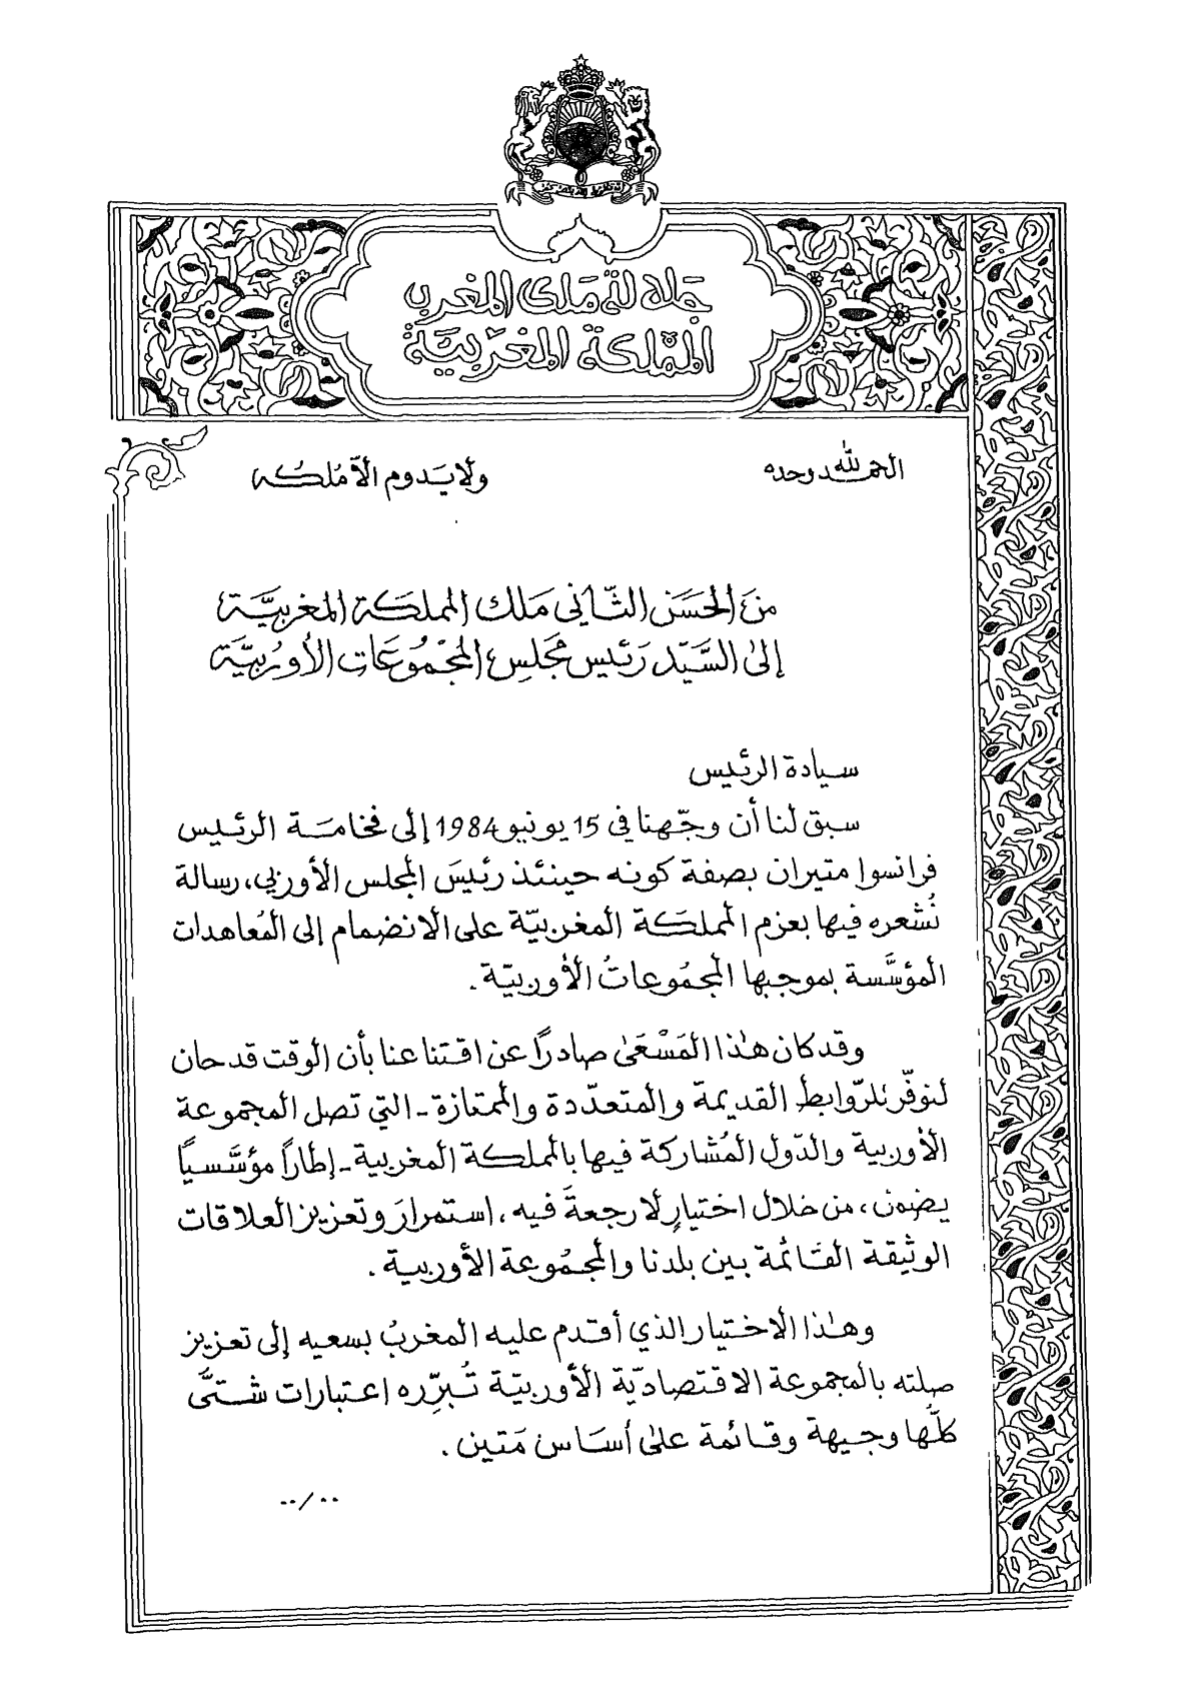 جلالة ملك المغرب
المملكة المغربيّة
الحمد لله وحده
ولا يَدوم الاّ مُلكُه
منَ الحَسَن الثّاني مَلك المملَكة المغربيَّة
إلىٰ السَّيّد رَئيس مجَلسِ المجْمُوعَات الأورُبيَّة
سيادة الرئيس
سبق لنا أن وجّهنا في 15 يونيو 1984 إلى فخامَة الرئيس
فرانسوا متيران بصفة كونه حينئذ رئيسَ المجلس الأوربي، رسالة
نُشعره فيها بعزم المملكَة المغربيّة على الانضمام إلى المُعاهدات
المؤسَّسة بموجبها المجمُوعاتُ الأوربيّة .
وقد كان هٰذا المَسْعَىٰ صادرًا عن اقتناعنا بأن الوقت قد حان
لنوفّر للرّوابط القديمة والمتعدّدة والممتازة ــ التي تصل المجموعة
الأوربية والدّول المُشاركة فيها بالمملكة المغربية ــ إطاراً مؤسَّسيًّا
يضمن، من خلال اختيارٍ لا رجعةَ فيه، استمرارَ وتعزيز العلاقات
الوثيقة القائمة بين بلدنا والمجمُوعة الأوربية .
وهٰذا الاختيار الذي أقدم عليه المغربُ بسعيه إلى تعزيز
صلته بالمجموعة الاقتصاديّة الأوربيّة تُبرِّره اعتبارات شتىَّ
كلُّها وجيهة وقائمة علىٰ أسَاس مَتين .
../..